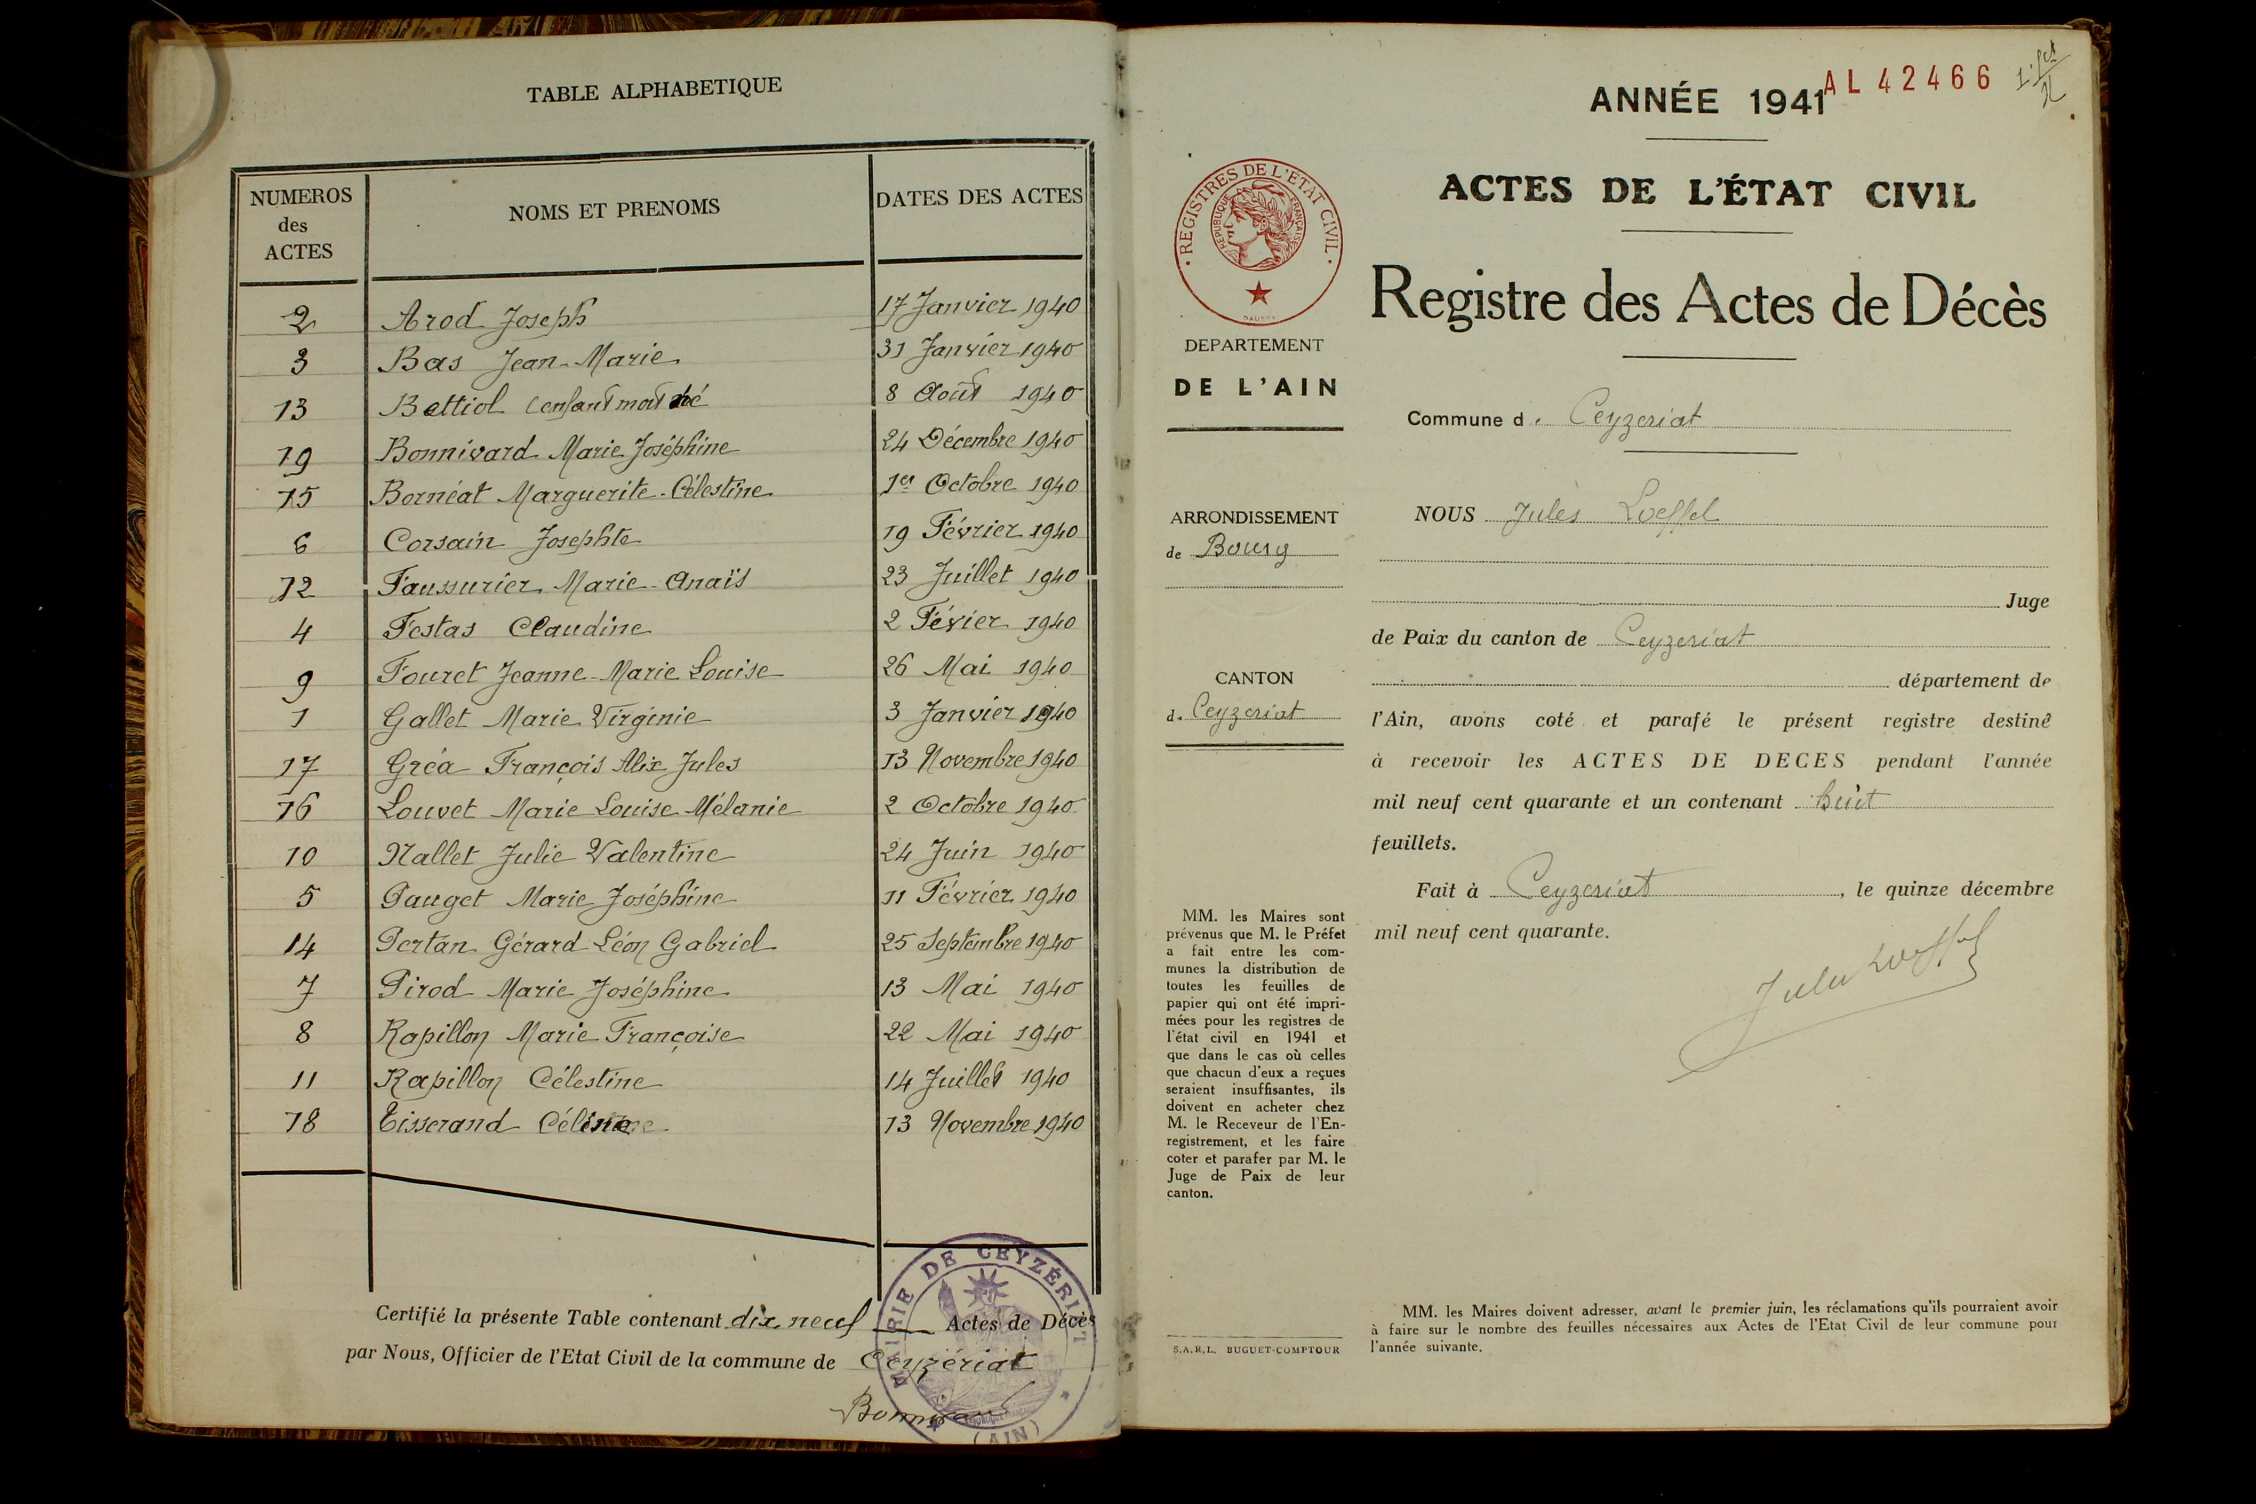 TABLE ALPHABETIQUE
NUMEROS des ACTES NOMS ET PRENOMS DATES DES ACTES
2 Arod Joseph 17 Janvier 1940
3 Bas Jean-Marie 31 Janvier 1940
13 Battiol (enfant mort né 8 Août 1940
19 Bonnivard Marie Joséphine 24 Décembre 1940
15 Bornéat Marguerite-Célestine 1er Octobre 1940
6 Corsain Josephte 19 Février 1940
12 Faussurier Marie-Anaïs 23 Juillet 1940
4 Festas Claudine 2 Févier 1940
9 Fouret Jeanne-Marie Louise 26 Mai 1940
1 Gallet Marie Virginie 3 Janvier 1940
17 Gréa François Alix Jules 13 Novembre 1940
16 Louvet Marie Louise Mélanie 2 Octobre 1940
10 Nallet Julie Valentine 24 Juin 1940
5 Pauget Marie Joséphine 11 Février 1940
14 Pertan Gérard Léon Gabriel 25 Septembre 1940
7 Pirod Marie Joséphine 13 Mai 1940
8 Rapillon Marie Françoise 22 Mai 1940
11 Rapillon Célestine 14 Juillet 1940
18 Tisserand 13 Novembre 1940
Certifié la présente Table contenant dix neuf Actes de Décès
par Nous, Officier de l'Etat Civil de la commune de Ceyzériat
MAIRIE DE CEYZÉRIAT
(AIN)
ANNÉE 1941
AL 42466
ACTES DE L'ÉTAT CIVIL
Registre des Actes de Décès
· REGISTRES DE L'ÉTAT CIVIL ·
RÉPUBLIQUE FRANÇAISE
DEPARTEMENT
DE L'AIN
Commune d. Ceyzeriat
ARRONDISSEMENT
de Bourg
CANTON
d. Ceyzeriat
NOUS Jules Loeffel
Juge
de Paix du canton de Ceyzeriat
département de
l'Ain, avons coté et parafé le présent registre destiné
à recevoir les ACTES DE DECES pendant l'année
mil neuf cent quarante et un contenant huit
feuillets.
Fait à Ceyzeriat, le quinze décembre
mil neuf cent quarante.
Jules Loeffel
MM. les Maires sont
prévenus que M. le Préfet
a fait entre les com-
munes la distribution de
toutes les feuilles de
papier qui ont été impri-
mées pour les registres de
l'état civil en 1941 et
que dans le cas où celles
que chacun d'eux a reçues
seraient insuffisantes, ils
doivent en acheter chez
M. le Receveur de l'En-
registrement, et les faire
coter et parafer par M. le
Juge de Paix de leur
canton.
S.A.R.L. BUGUET-COMPTOUR
MM. les Maires doivent adresser, avant le premier juin, les réclamations qu'ils pourraient avoir
à faire sur le nombre des feuilles nécessaires aux Actes de l'Etat Civil de leur commune pour
l'année suivante.